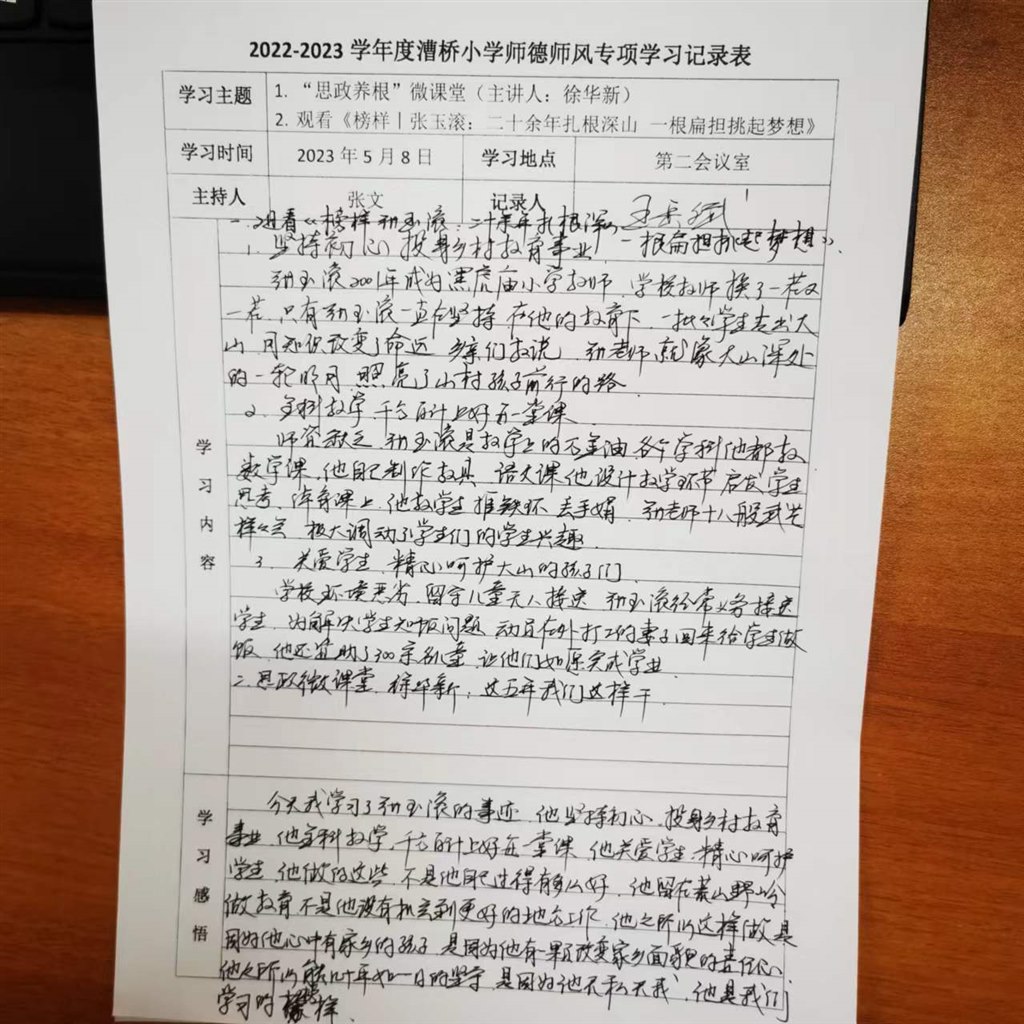 2022-2023 学年度漕桥小学师德师风专项学习记录表
学习主题
1. “思政养根”微课堂（主讲人：徐华新）
2. 观看《榜样丨张玉滚：二十余年扎根深山 一根扁担挑起梦想》
学习时间 2023 年 5 月 8 日 学习地点 第二会议室
主持人 张文 记录人
一、观看《榜样 张玉滚：二十余年扎根深山 一根扁担挑起梦想》
1. 坚持初心 投身乡村教育事业
张玉滚2001年成为黑虎庙小学教师 学校教师换了一茬又
一茬 只有张玉滚一直在坚持 在他的教育下 一批批学生走出大
山 用知识改变了命运 乡亲们都说 张老师就像大山深处
的一轮明月 照亮了山村孩子前行的路
2. 全科教学 千方百计上好每一堂课
师资缺乏 张玉滚是教学上的万金油 各个学科他都教
数学课 他自己制作教具 语文课 他设计教学环节 启发学生
思考 体育课上 他教学生推铁环 丢手娟 张老师十八般武艺
样样会 极大调动了学生们的学生兴趣
3. 关爱学生 精心呵护大山的孩子们
学校环境恶劣 留守儿童无人接送 张玉滚经常义务接送
学生 为解决学生吃饭问题 动员在外打工的妻子回来给学生做
饭 他还资助了300余名儿童 让他们如愿完成学业
二、思政微课堂 徐华新：这五年我们这样干
学习内容
今天我学习了张玉滚的事迹 他坚持初心 投身乡村教育
事业 他全科教学 千方百计上好每一堂课 他关爱学生 精心呵护
学生 他做的这些 不是他自己过得有多么好 他留在荒山野岭
做教育 不是他没有机会到更好的地方工作 他之所以这样做 是
因为他心中有家乡的孩子 是因为他有一颗改变家乡面貌的责任心
他之所以能几十年如一日的坚守 是因为他不私无我 他是我们
学习的榜样
学习感悟